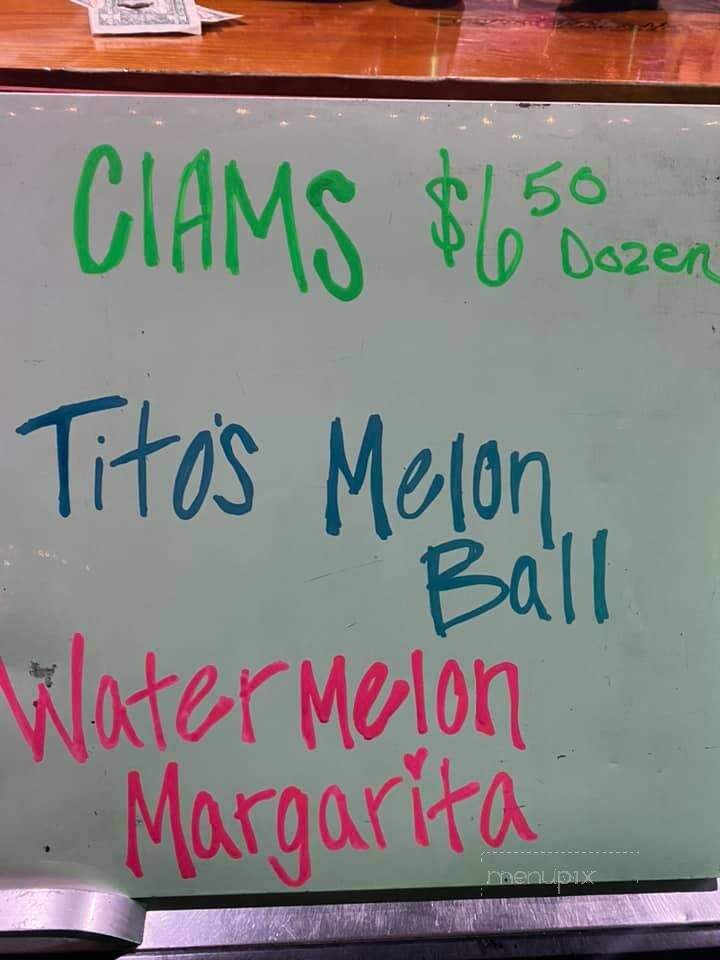 ClAMS $6 50 Dozen
Tito's Melon
Ball
Watermelon
Margarita
menupix